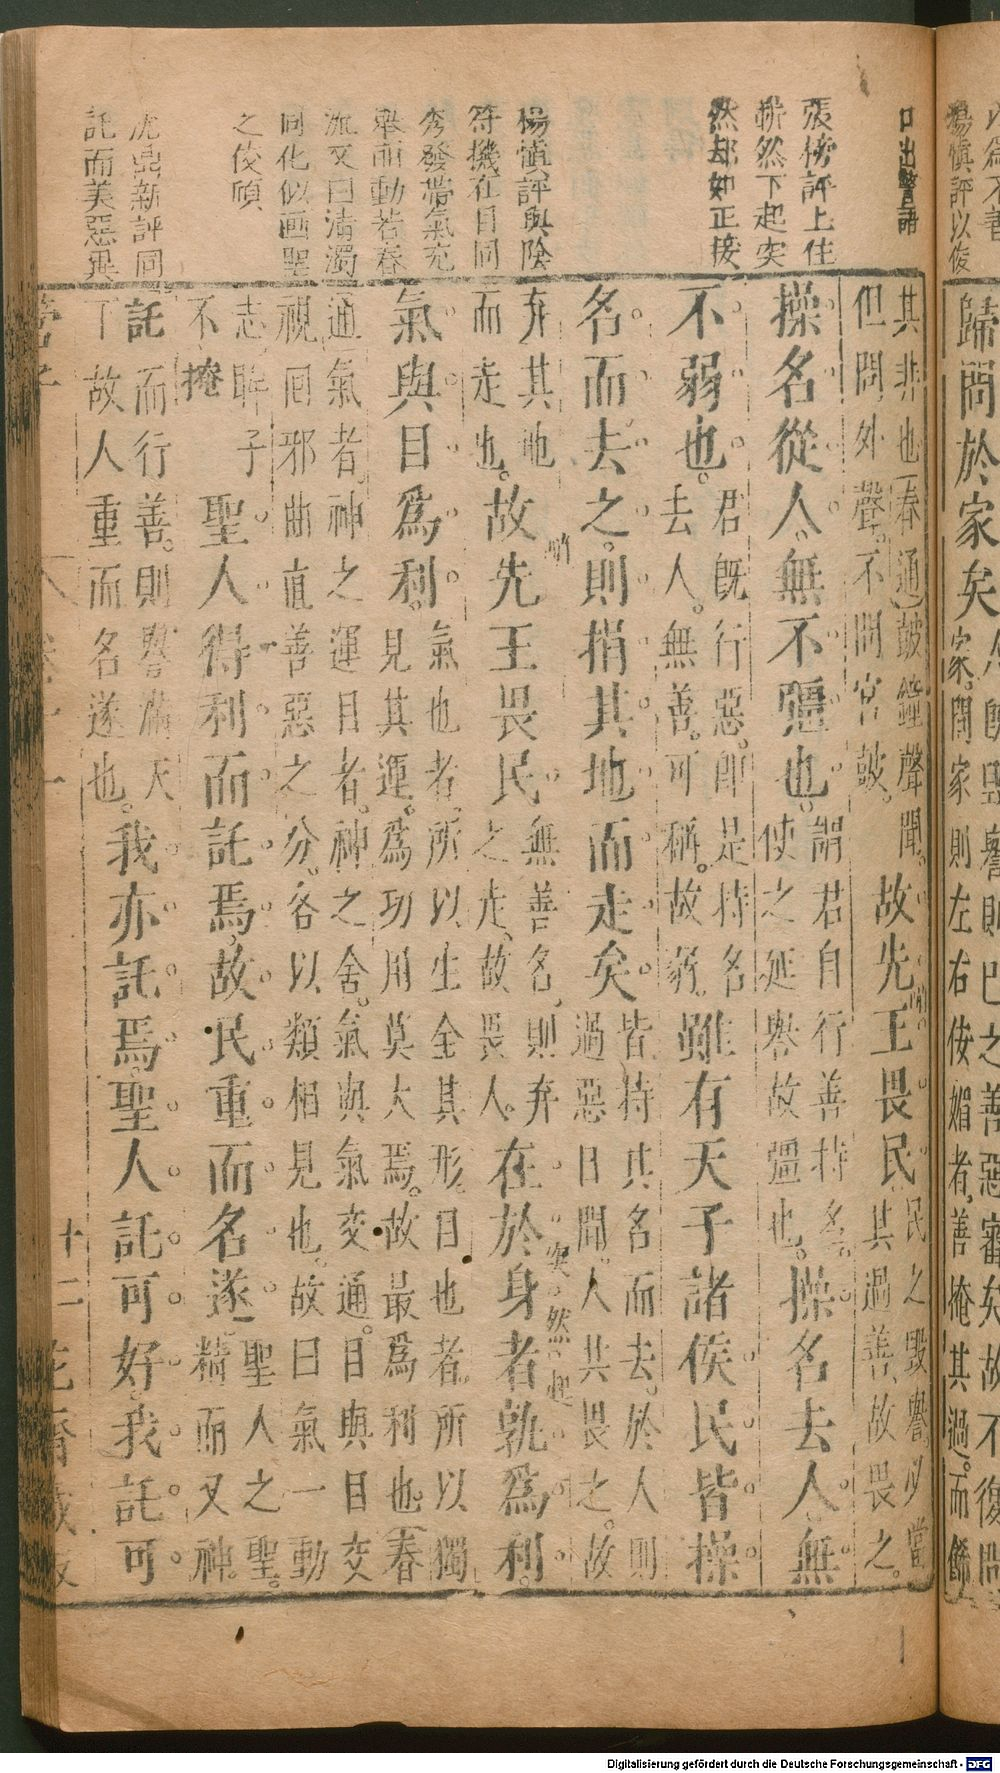 歸問於家矣
家則左右佞媚者善掩其過而飾
楊慎評以俊
口出警語
張榜評上住
然却如正接
其非也春通鼓鐘聲聞
但問外聲不問宮鼓
故先王畏民
民之毀譽以當
其過善故畏之
操名從人無不彊也
謂君自行善持名
使之延譽故彊也
操名去人無
不弱也
君既行惡即是持名
去人無善可稱故弱
雖有天子諸侯民皆操
名而去之則捐其地而走矣
皆持其名而去於人則
過惡日聞人共畏之故
楊慎評與陰
符機在目同
弃其地
而走也
故先王畏民
無善名則弃
之走故畏人
在於身者孰爲利
突然起
秀發帶氣充
氣與目爲利
氣也者所以生全其形目也者所以獨
見其運爲功用莫大焉故最爲利也春
流又曰淸濁
同化似画聖
通氣者神之運目者神之舍氣與氣交通目與目交
視囘邪曲直善惡之分各以類相見也故曰氣一動
志
不掩
聖人得利而託焉故民重而名遂
聖人之聖
精而又神
託而美惡
託而行善則譽滿天
丁故人重而名遂也
我亦託焉聖人託可好我託可
十二
Digitalisierung gefördert durch die Deutsche Forschungsgemeinschaft - DFG